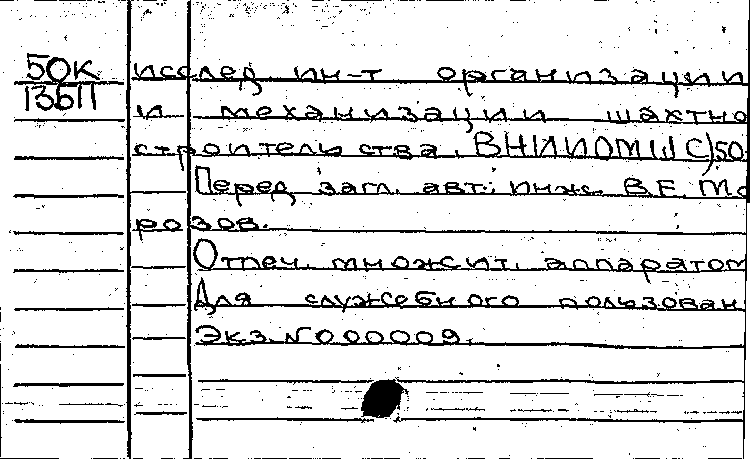 50К исслед. ин-т организации
13511 и механизации шахтно
строительства. ВНИИОМШС) 50-
Перед загл. авт.: инж. В.Е. Мо
розов.
Отпеч. множит. аппаратом
Для служебного пользован
Экз. №000009.